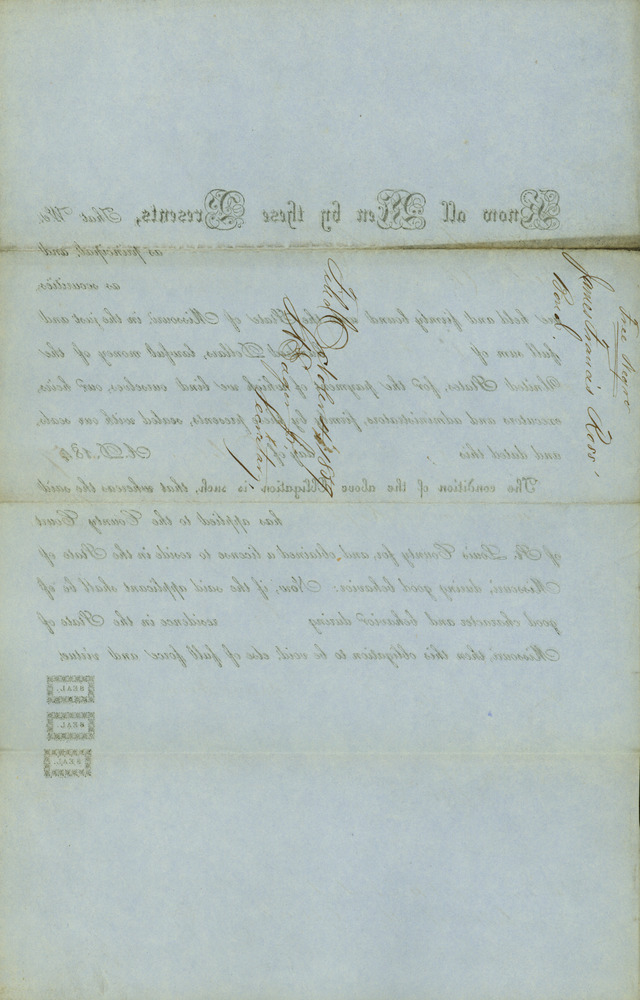 Free Negro
James Francis Ross'
Bond
Filed October
Secretary
Know all Men by these Presents, That We,
as principal, and
as securities,
held and firmly bound the State of Missouri, in the just and
full sum of Dollars, lawful money of the
United States, for the payment of which we bind ourselves, our heirs,
executors and administrators, firmly by these presents, sealed with our seals,
and dated this day of A. D. 184
The condition of the above Obligation is such, that whereas the said
has applied to the County Court
of St. Louis County for, and obtained a license to reside in the State of
Missouri, during good behavior: Now, if the said applicant shall be of
good character and behavior during residence in the State of
Missouri, then this obligation to be void, else of full force and virtue.
SEAL.
SEAL
SEAL.